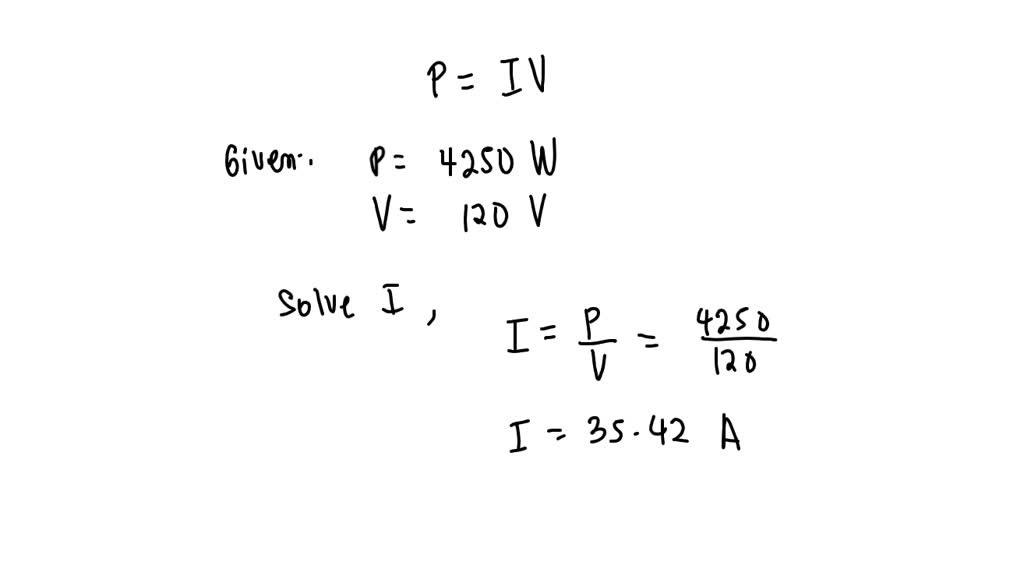 P = IV
Given: P = 4250 W
V = 120 V
Solve I, I = P/V = 4250/120
I = 35.42 A